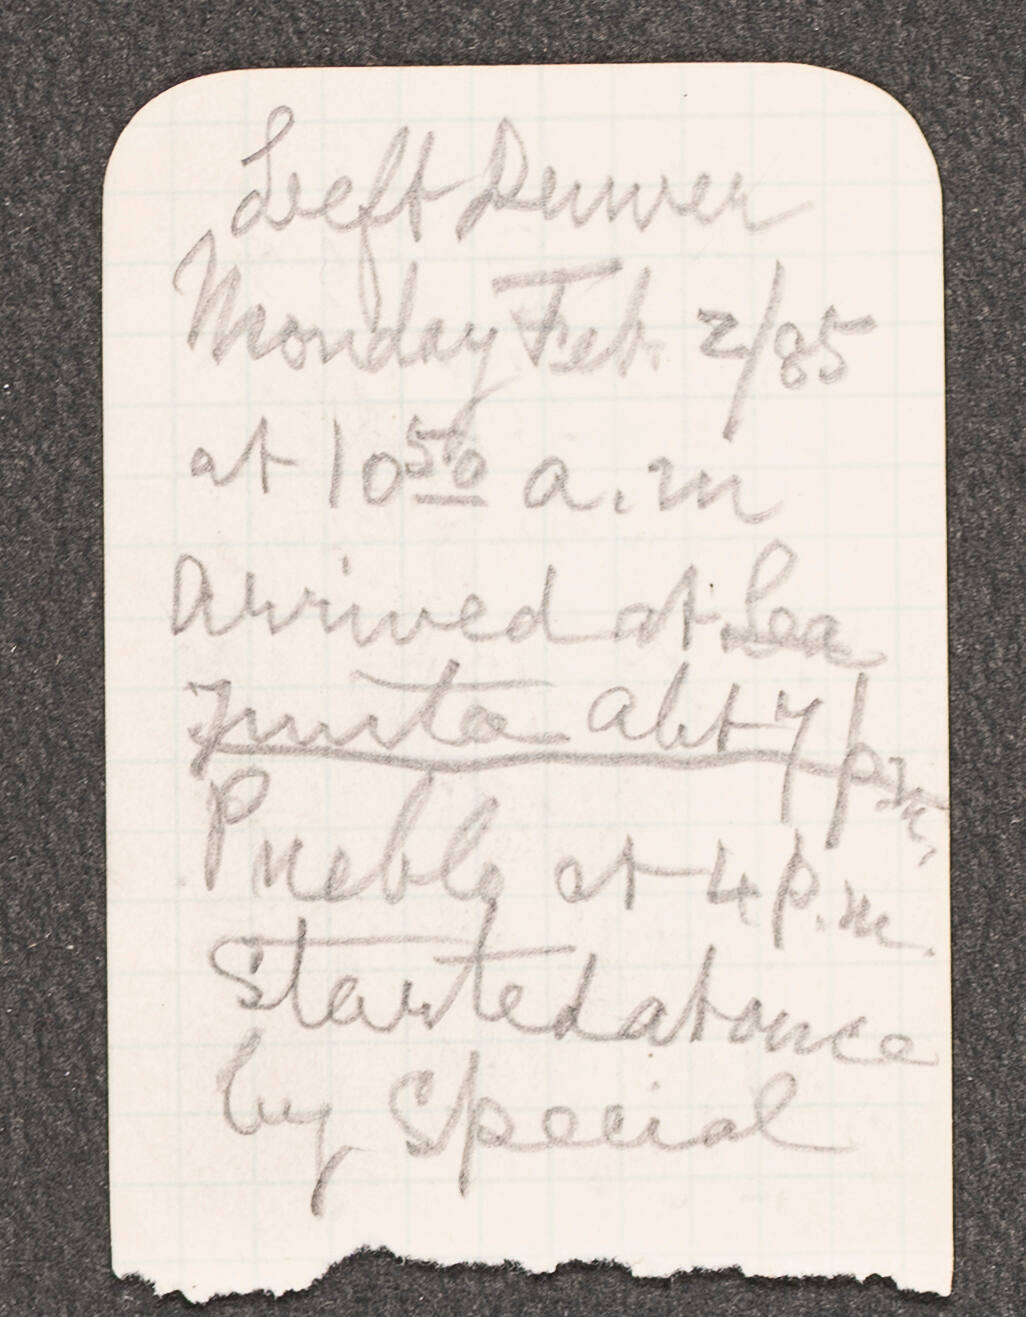 Left Denver
Monday Feb. 2/85
at 10 50 a.m
Arrived at La
Junta abt 7 pm,
Pueblo at 4 p.m.
Started at once
by Special